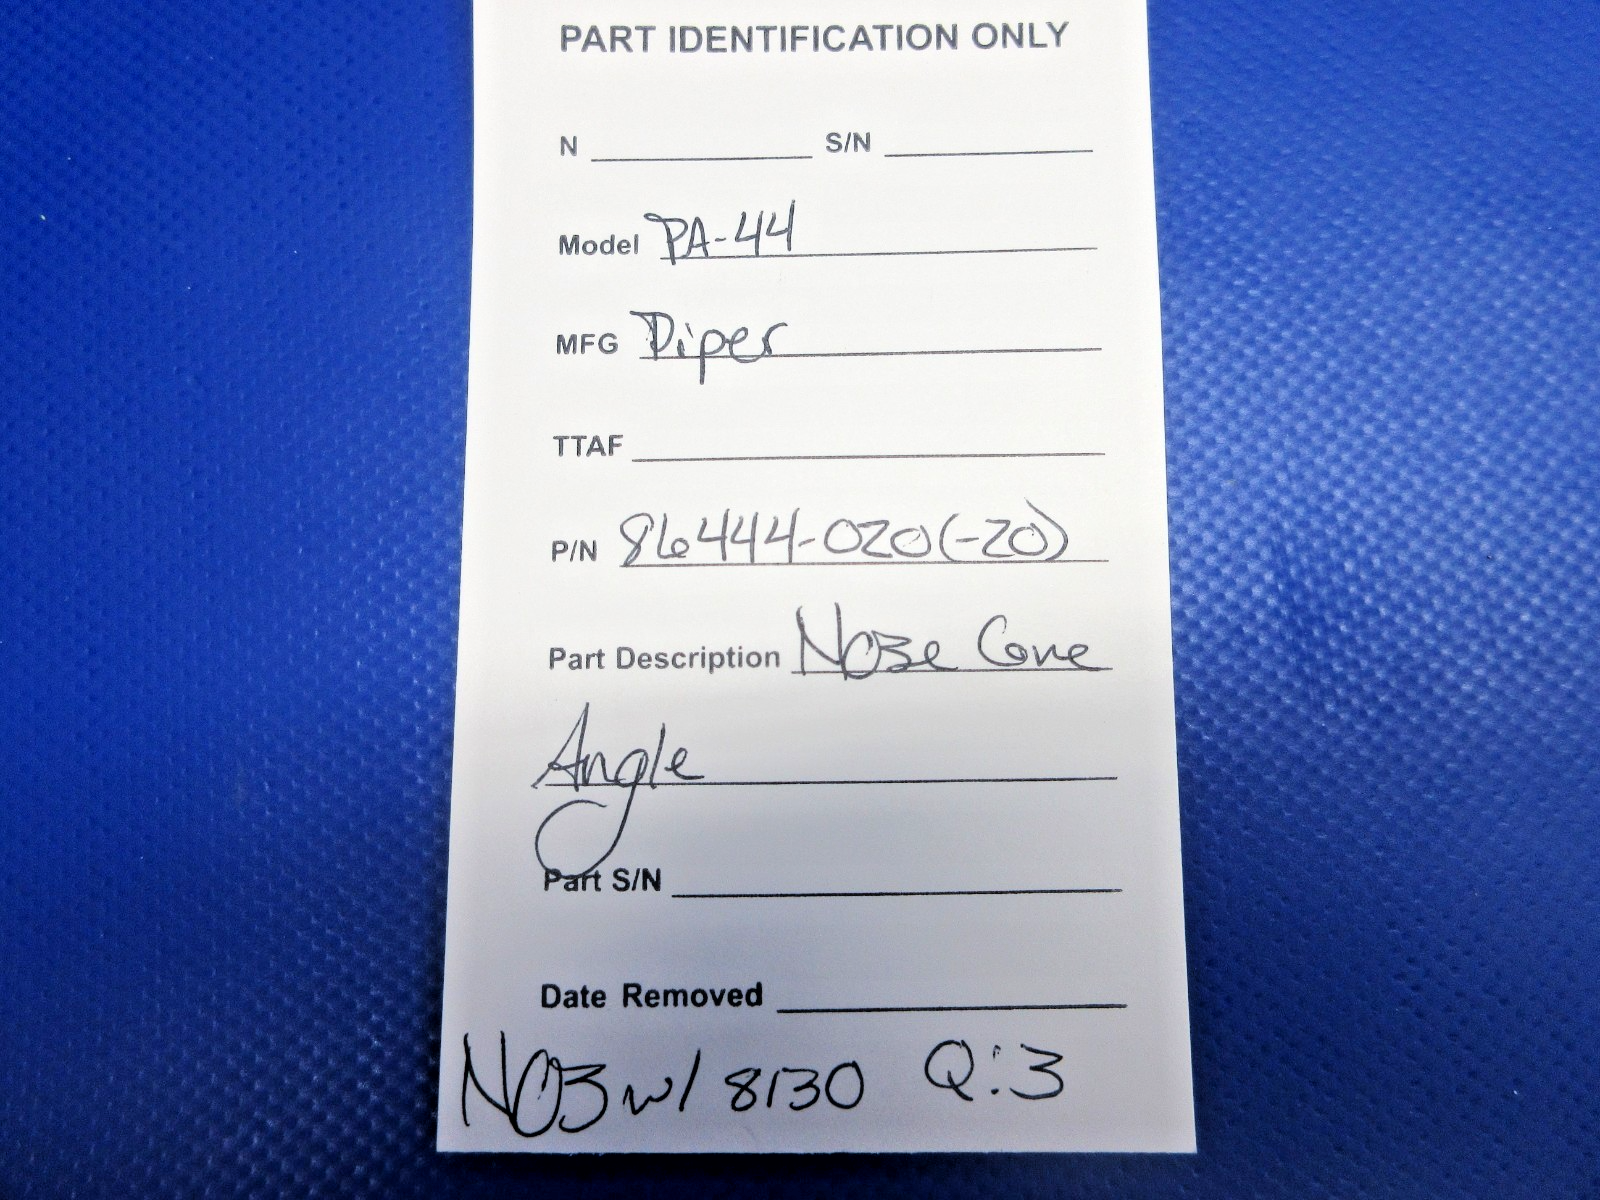 PART IDENTIFICATION ONLY
N S/N
Model PA-44
MFG Piper
TTAF
P/N 86444-020(-20)
Part Description Nose Cone
Angle
Part S/N
Date Removed
NOS w/ 8130 Q:3